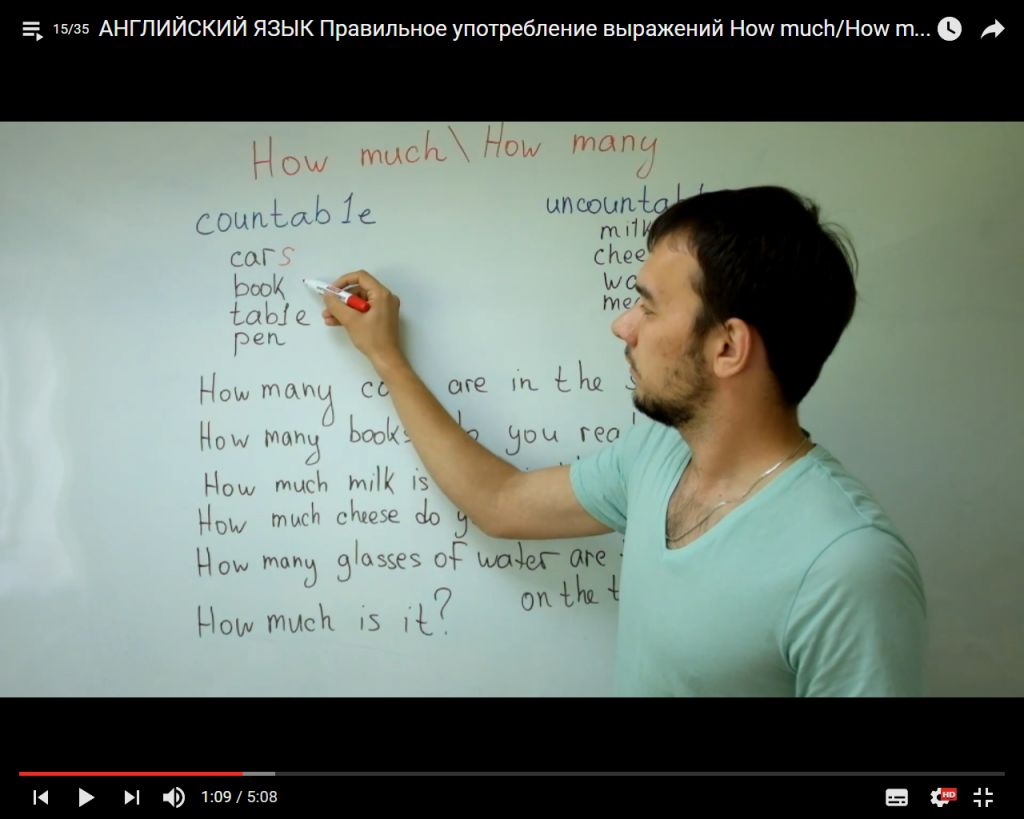 15/35 АНГЛИЙСКИЙ ЯЗЫК Правильное употребление выражений How much/How m...
How much\How many
countable
cars
book
table
pen
How many are in the
How many books you
How much milk is
How much cheese do
How many glasses of water are
on the
How much is it?
1:09 / 5:08
HD